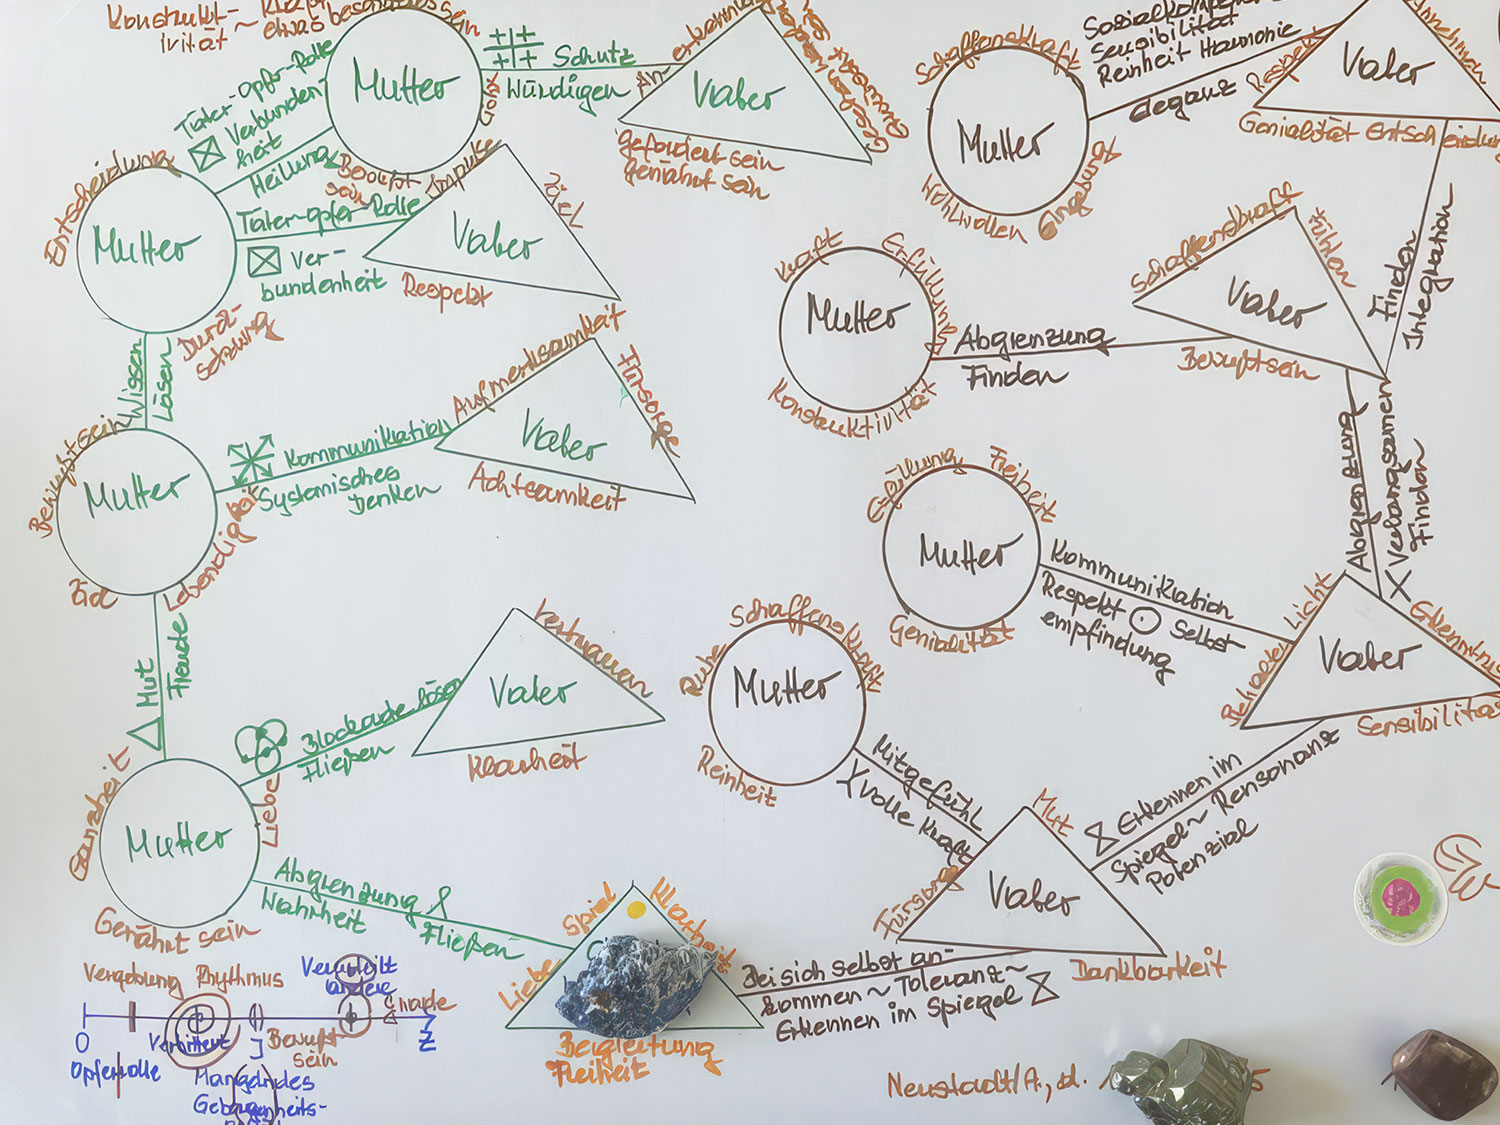 Konstrukt-
ivität ~
etwas besonderes sein
Mutter
Schutz
Würdigen
Vater
gefordert sein
genährt sein
Täter-Opfer-Rolle
Verbunden
heit
Heilung
Bewusst
sein
Impulse
Entscheidung
Mutter
Durch-
setzung
Täter-Opfer-Rolle
Ver-
bundenheit
Vater
Ziel
Respekt
Wissen
Lösen
Bewußtsein
Mutter
Ziel
Lebendigkeit
Kommunikation
Systemisches
Denken
Aufmerksamkeit
Vater
Fürsorge
Achtsamkeit
Mut
Freude
Ganzheit
Mutter
Liebe
Genährt sein
Blockade lösen
Fließen
Vertrauen
Vater
Klarheit
Abgrenzung
Wahrheit
Fließen
Spiel
Klarheit
Liebe
Begleitung
Freiheit
Schaffenskraft
Mutter
Wohlwollen
Eingebung
Sensibilität
Reinheit Harmonie
Eleganz
Respekt
Vater
Annehmen
Genialität Entscheidung
Finden
Integration
Kraft
Erfüllung
Mutter
Konstruktivität
Abgrenzung
Finden
Schaffenskraft
Fühlen
Vater
Bewußtsein
Abgrenzung
Finden
Freiheit
Mutter
Genialität
Kommunikation
Respekt
Selbst
empfindung
Licht
Erkenntnis
Vater
Sensibilität
Ruhe
Schaffenskraft
Mutter
Reinheit
Mitgefühl
volle Kraft
Mut
Fürsorge
Vater
Dankbarkeit
Erkennen im
Spiegel ~ Rensonanz
Potenzial
Bei sich selbst an-
kommen ~ Toleranz ~
Erkennen im Spiegel
Vergebung
Rhythmus
Verurteilt
andere
Gnade
0
Z
Verbittert
Bewußt
sein
Opferrolle
Mangelndes
Geborgenheits-
Neustadt/A., d.